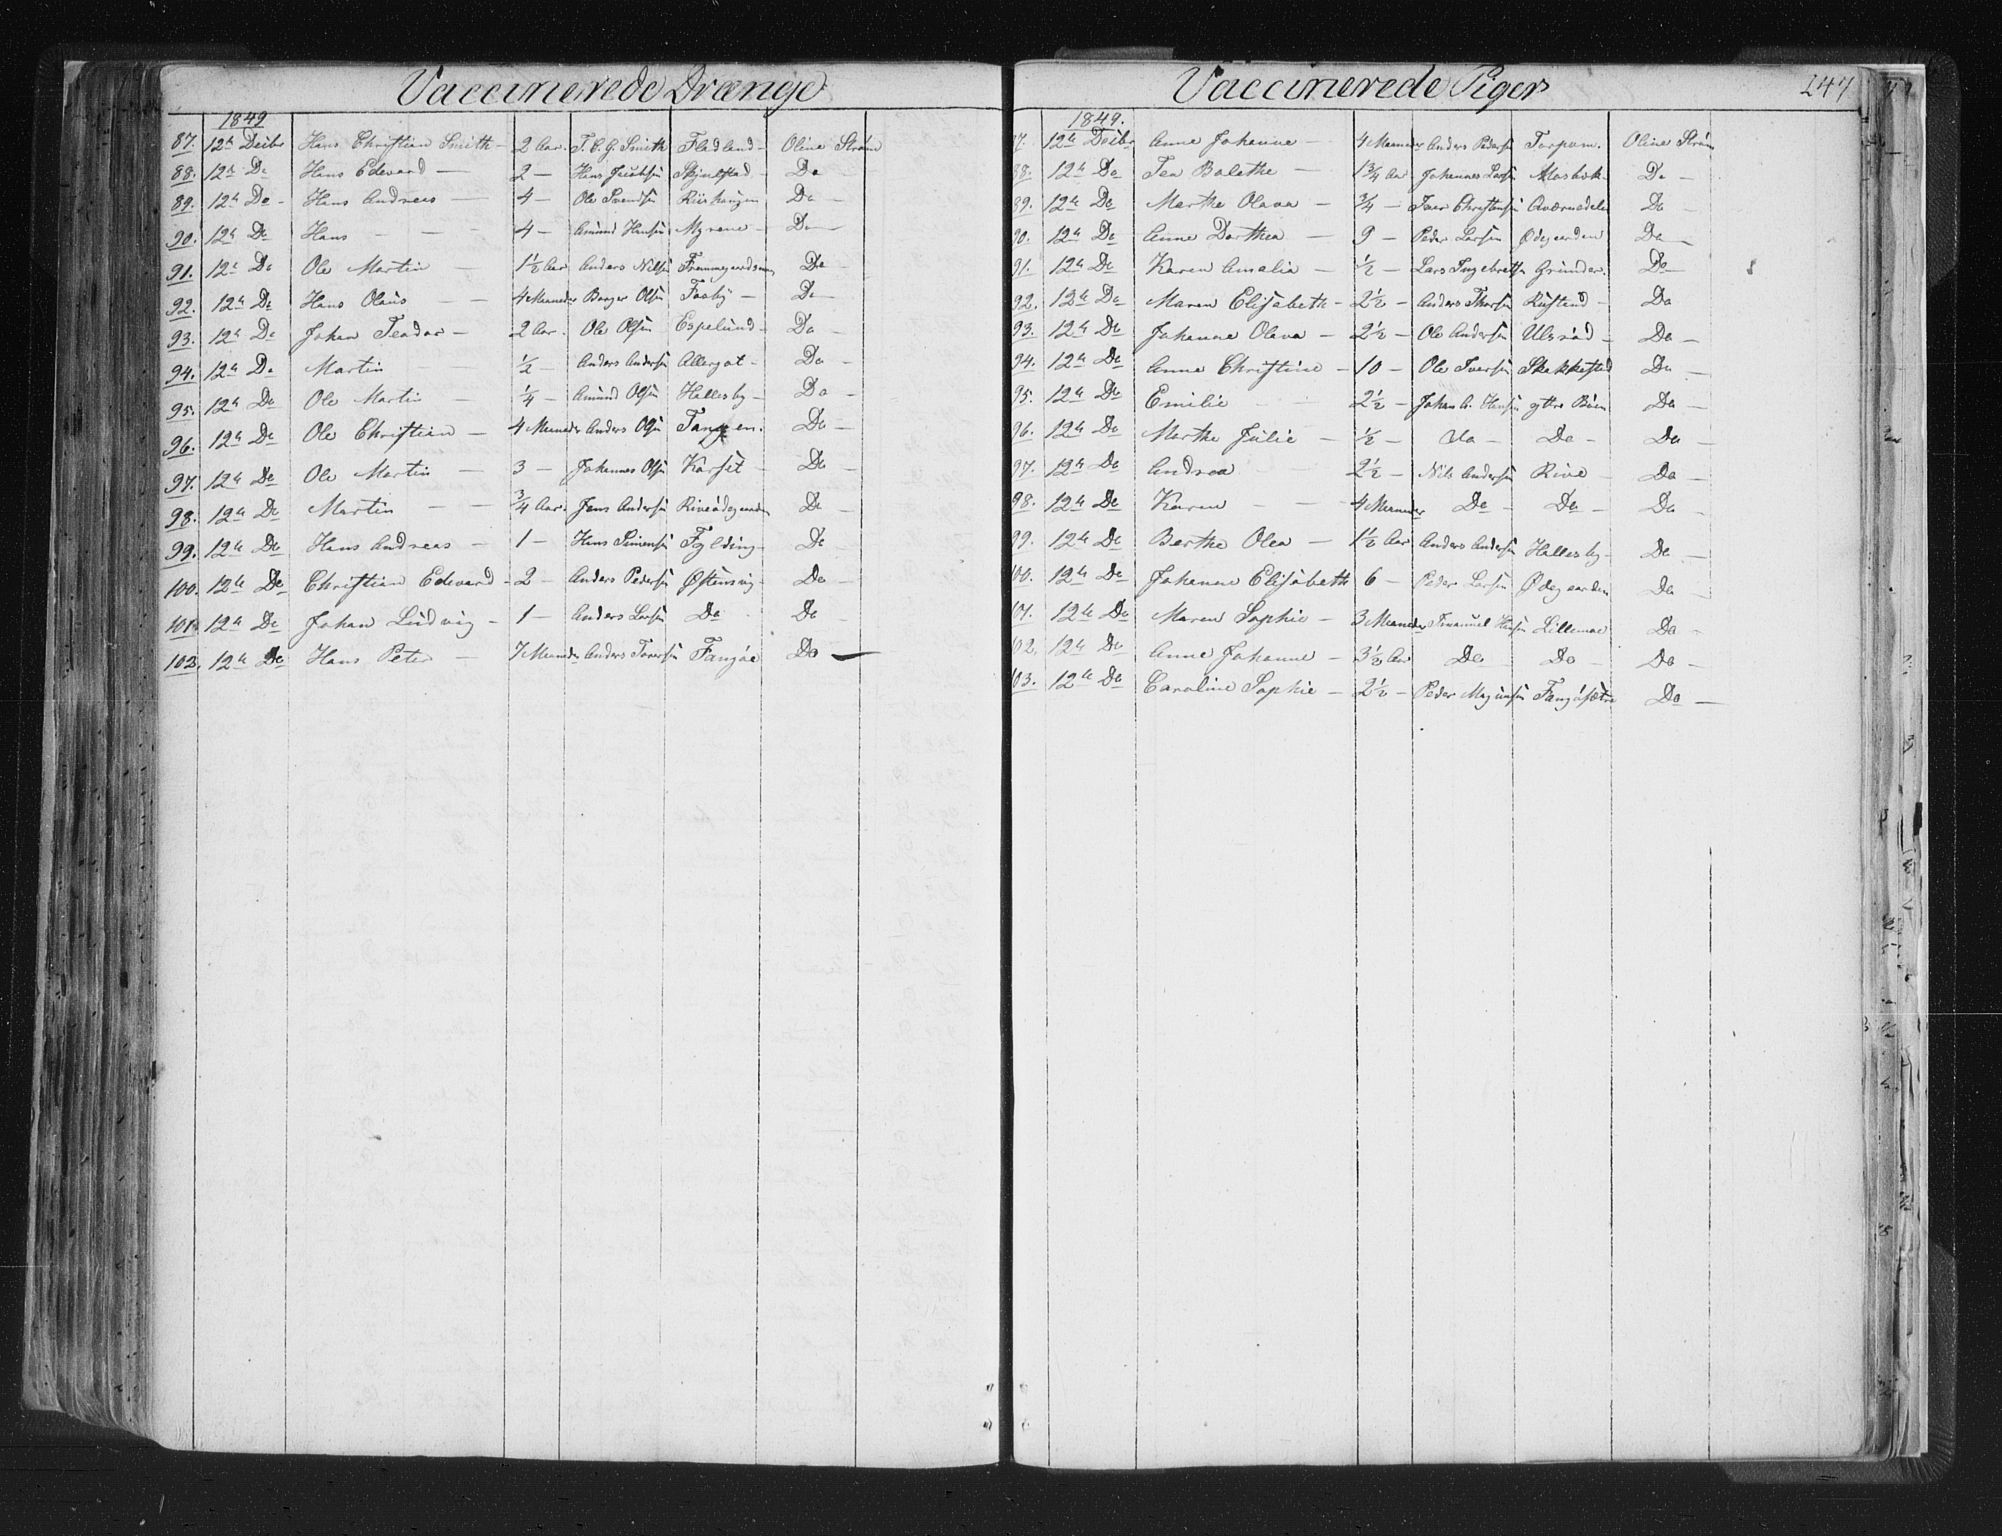 Vaccinerede Drænge
1849
87. 12te Decbr Hans Christian Smith - 2 Aar. T. C. G. Smith Fladland - Oline Strøm
88. 12te Do Hans Edevard - 2 - Hans Jacobsen Skjulstad - Do
89. 12te Do - Hans Andreas - 4 - Ole Svendsen Riishaugen Do -
90. 12te Do Hans - - - 4 - Amund Hansen Myrene - Do -
91. 12te Do Ole Martin - 1½ Aar Anders Nilsen Do
92. 12te Do Hans Olaus - 4 Maaneder Borger Olsen Fosby - Do -
93. 12te Do Johan Teodor - 2 Aar. Ole Olsen Espelund - Do -
94. 12te Do Martin ½ - Anders Andersen Allergot - Do -
95. 12te Do Ole Martin - ¼ - Amund Olsen Hallesby - Do -
96. 12te Do Ole Christian - 4 Maaneder Anders Olsen Tangen. Do -
97. 12te Do Ole Martin - 3 - Johannes Olsen Korset - Do -
98. 12te Do Martin - - ¾ Aar. Jens Andersen Riveødegaarden Do -
99. 12te Do Hans Andreas - 1 - Hans Simensen Fylding - Do -
100. 12te Do Christian Edevard - 2 - Anders Pedersen Østensvig - Do -
101. 12te Do Johan Ludvig - 1 - Anders Larsen Do Do -
102. 12te Do Hans Peter - 7 Maaneder Anders Iversen Fangøe Do -
Vaccinerede Piger
247
1849.
87. 12te Decbr Anne Johanne - 4 Maaneder Anders Pedersen Torpom. Oline Strøm
88. 12te Do Tea Bolethe - 1¾ Aar Johannes Larsen Mosbek - Do -
89. 12te Do Marthe Olava - ¾ - Iver Christensen Do -
90. 12te Do Anne Dorthea - 9 - Peder Larsen Ødegaarden Do -
91. 12te Do Karen Amalia - ½ - Lars Ingebretsen Grinder. Do -
92. 12te Do Maren Elisabeth - 2½ - Anders Thorsen Rustad - Do
93. 12te Do Johanne Olava - 2½ - Ole Andersen Ulsrød - Do -
94. 12te Do Anne Christine - 10 - Ole Iversen Skakkestad Do -
95. 12te Do Emilie - 2½ - Johan A. Hansen yttre Bøen Do -
96. 12te Do Marthe Julie - ½ - do - Do - Do -
97. 12te Do Andrea - 2½ - Nils Andersen Rive - Do -
98. 12te Do Karen - - 4 Maaneder Do - Do - Do -
99. 12te Do Berthe Olea - 1½ Aar Anders Andersen Hallesby - Do -
100. 12te Do Johanne Elisabeth 6 - Peder Larsen Ødegaarden Do -
101. 12te Do Maren Sophie - 3 Maaneder Imanuel Hansen Lillemoe Do -
102. 12te Do Anne Johanne - 3½ Aar Do - Do - Do -
103. 12te Do Caroline Sophie - 2½ - Peder Magnusen Fangøsætre Do -